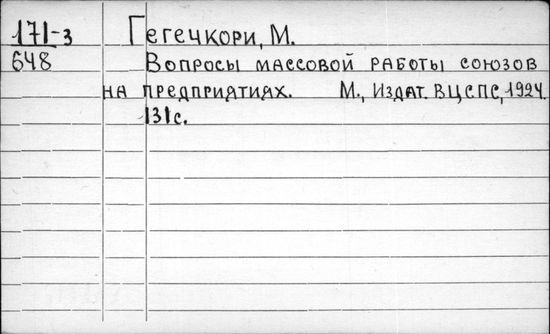 171-3 Гегечкори, М.
648 Вопросы массовой работы союзов
на предприятиях. М., Издат. ВЦСПС, 1924.
131с.